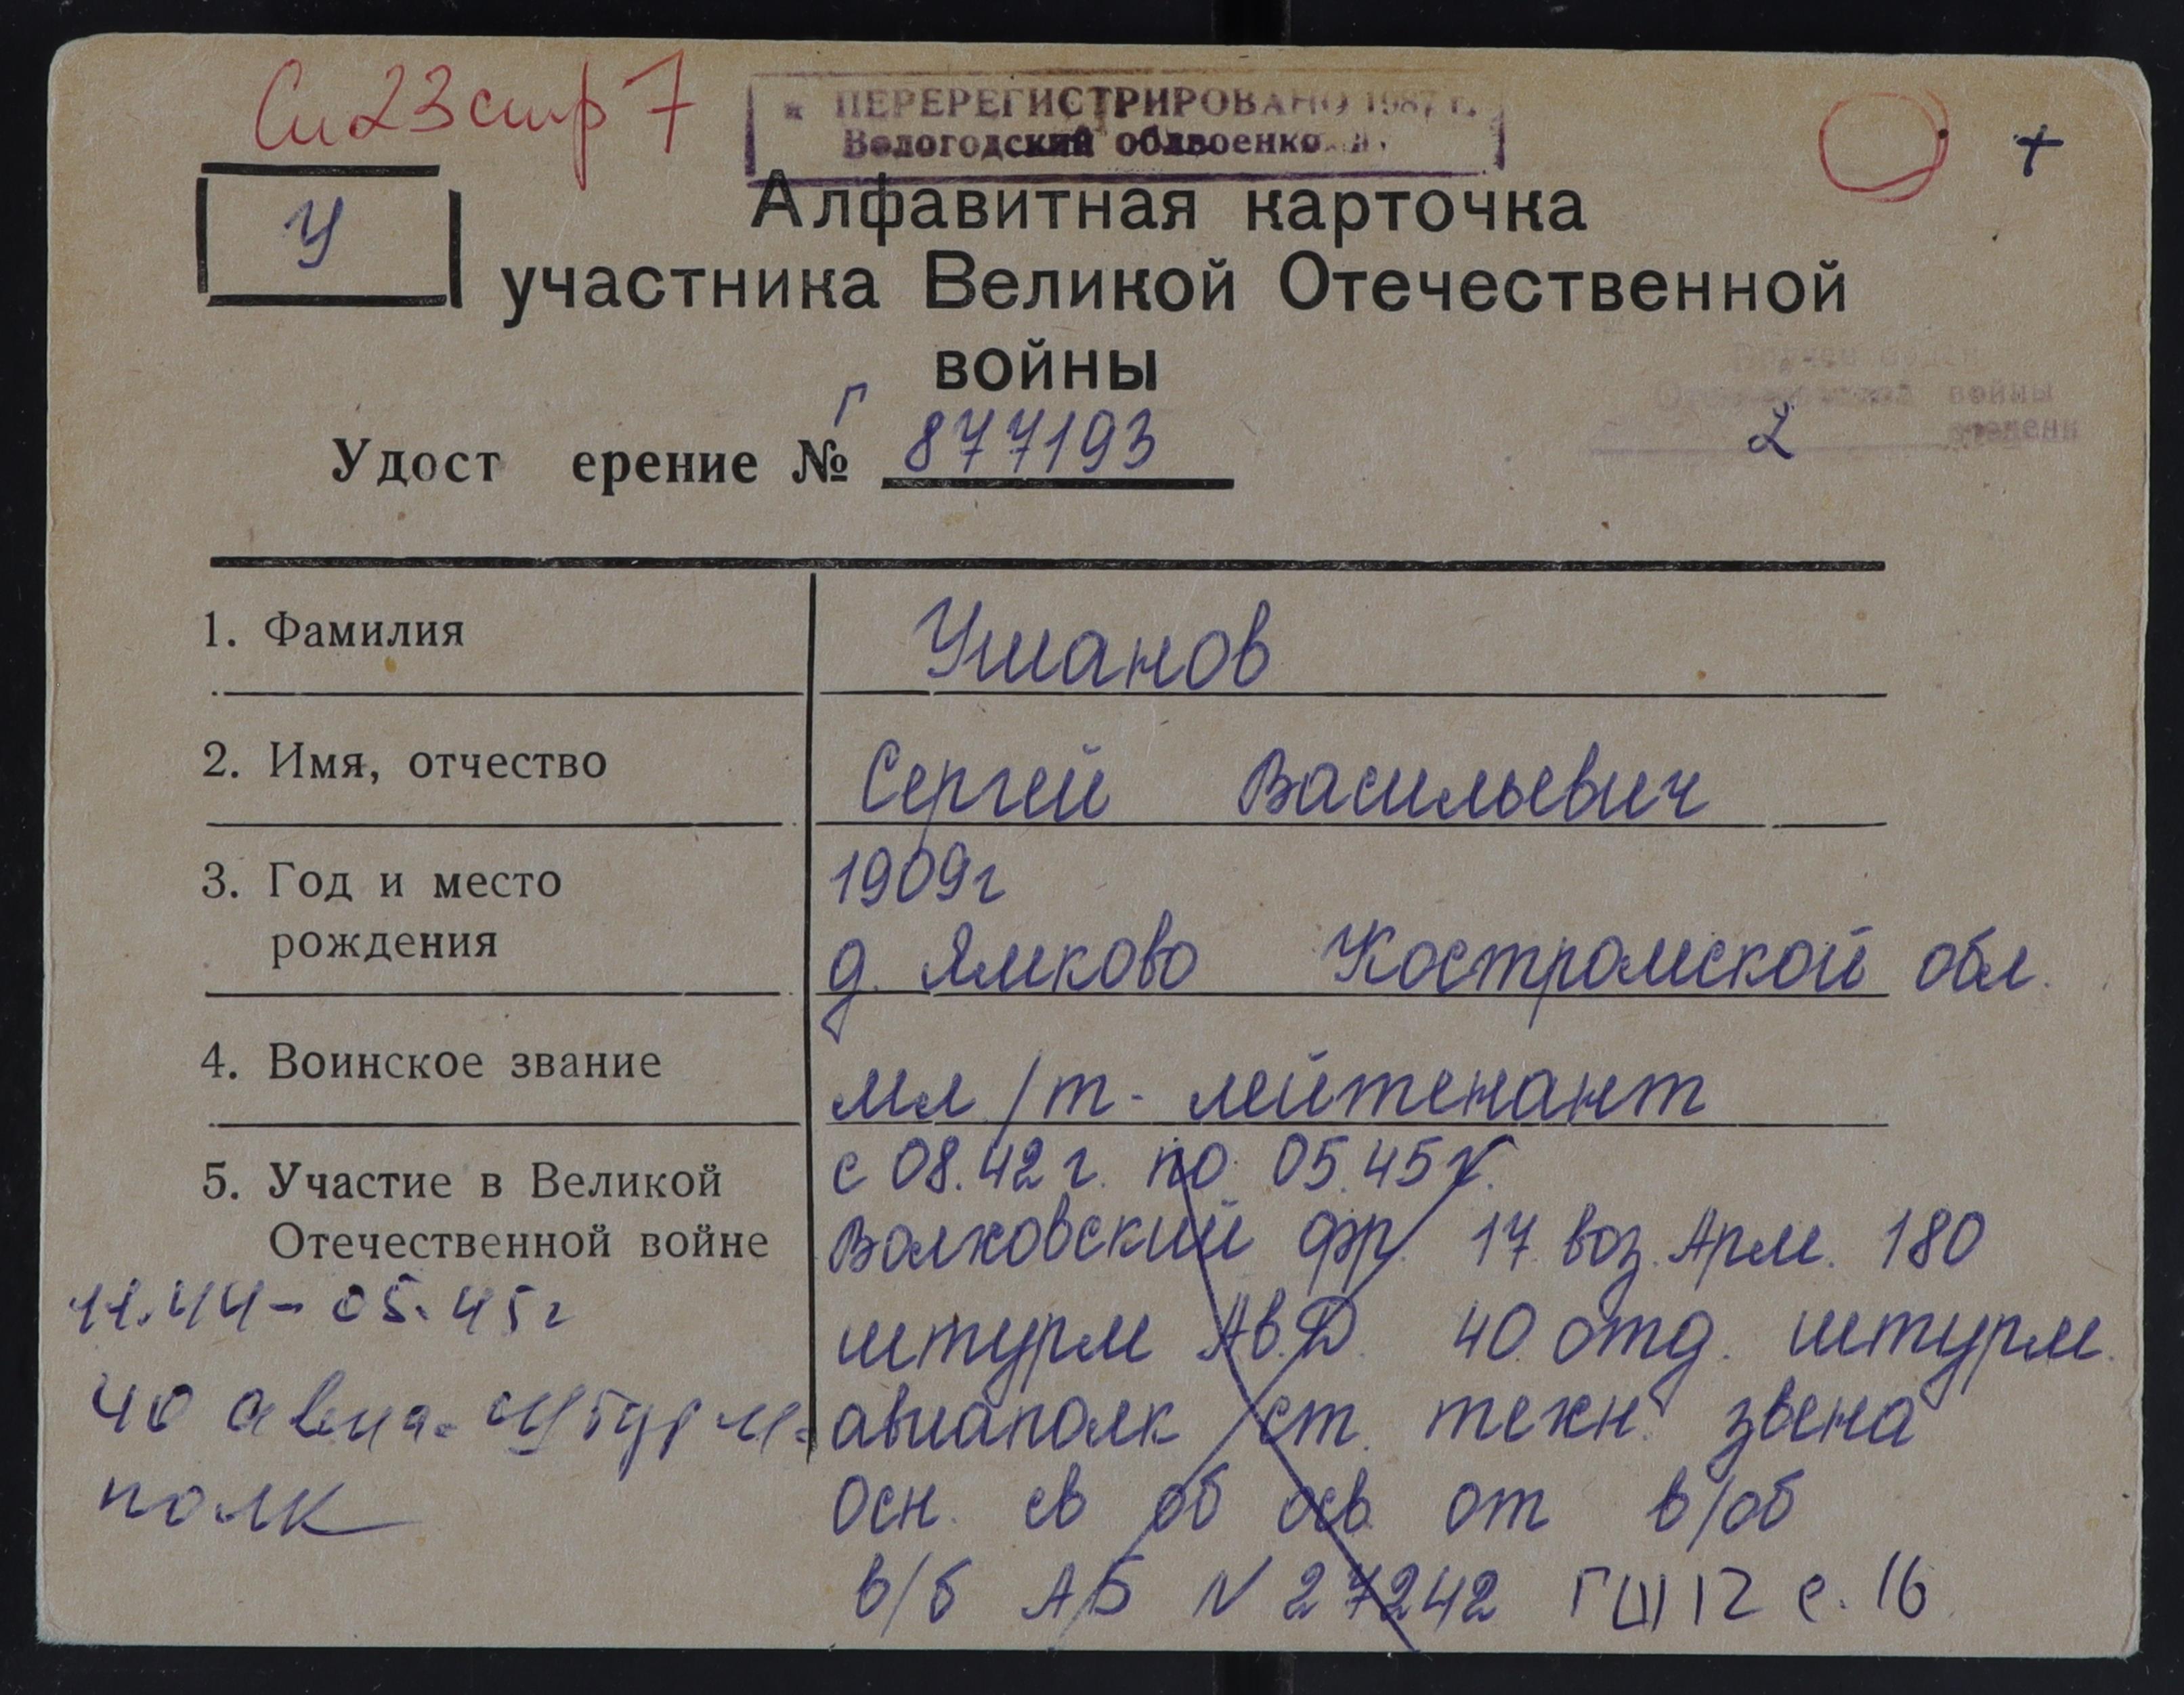 Сп 23 стр 7
ПЕРЕРЕГИСТРИРОВАНО 1987 г.
Вологодский облвоенко
+
У
Алфавитная карточка
участника Великой Отечественной
войны
войны
2
Г
Удост ерение № 877193
1. Фамилия Ушанов
2. Имя, отчество Сергей Васильевич
3. Год и место рождения 1909г
д. Ямково Костромской обл.
4. Воинское звание мл/т- лейтенант
5. Участие в Великой Отечественной войне
с 08.42 г. по 05.45 г.
Волховский фр. 17 воз. Арм. 180
штурм Ав.Д. 40 отд. штурм.
авиаполк ст. техн. звена
Осн. св об осв. от в/об
в/б АБ N 27242 ГШ 12 с. 16
11.44 - 05.45г
40 авиа-штурм.
полк